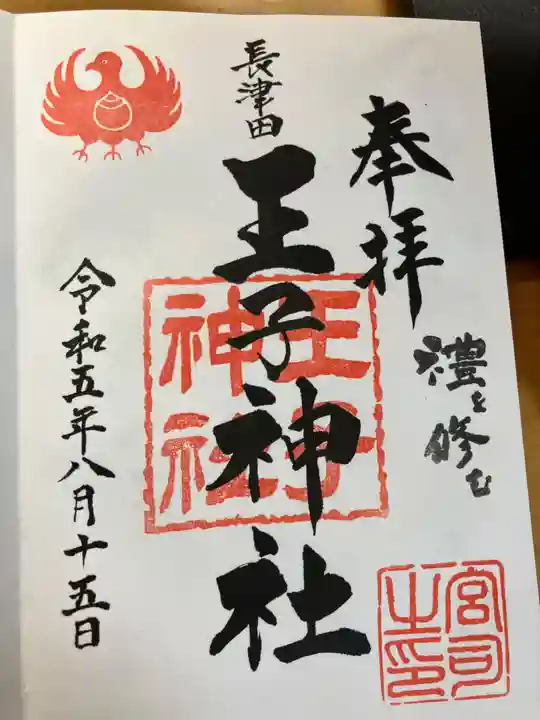 奉拝
禮を修む
長津田
王子神社
王子神社
宮司之印
令和五年八月十五日